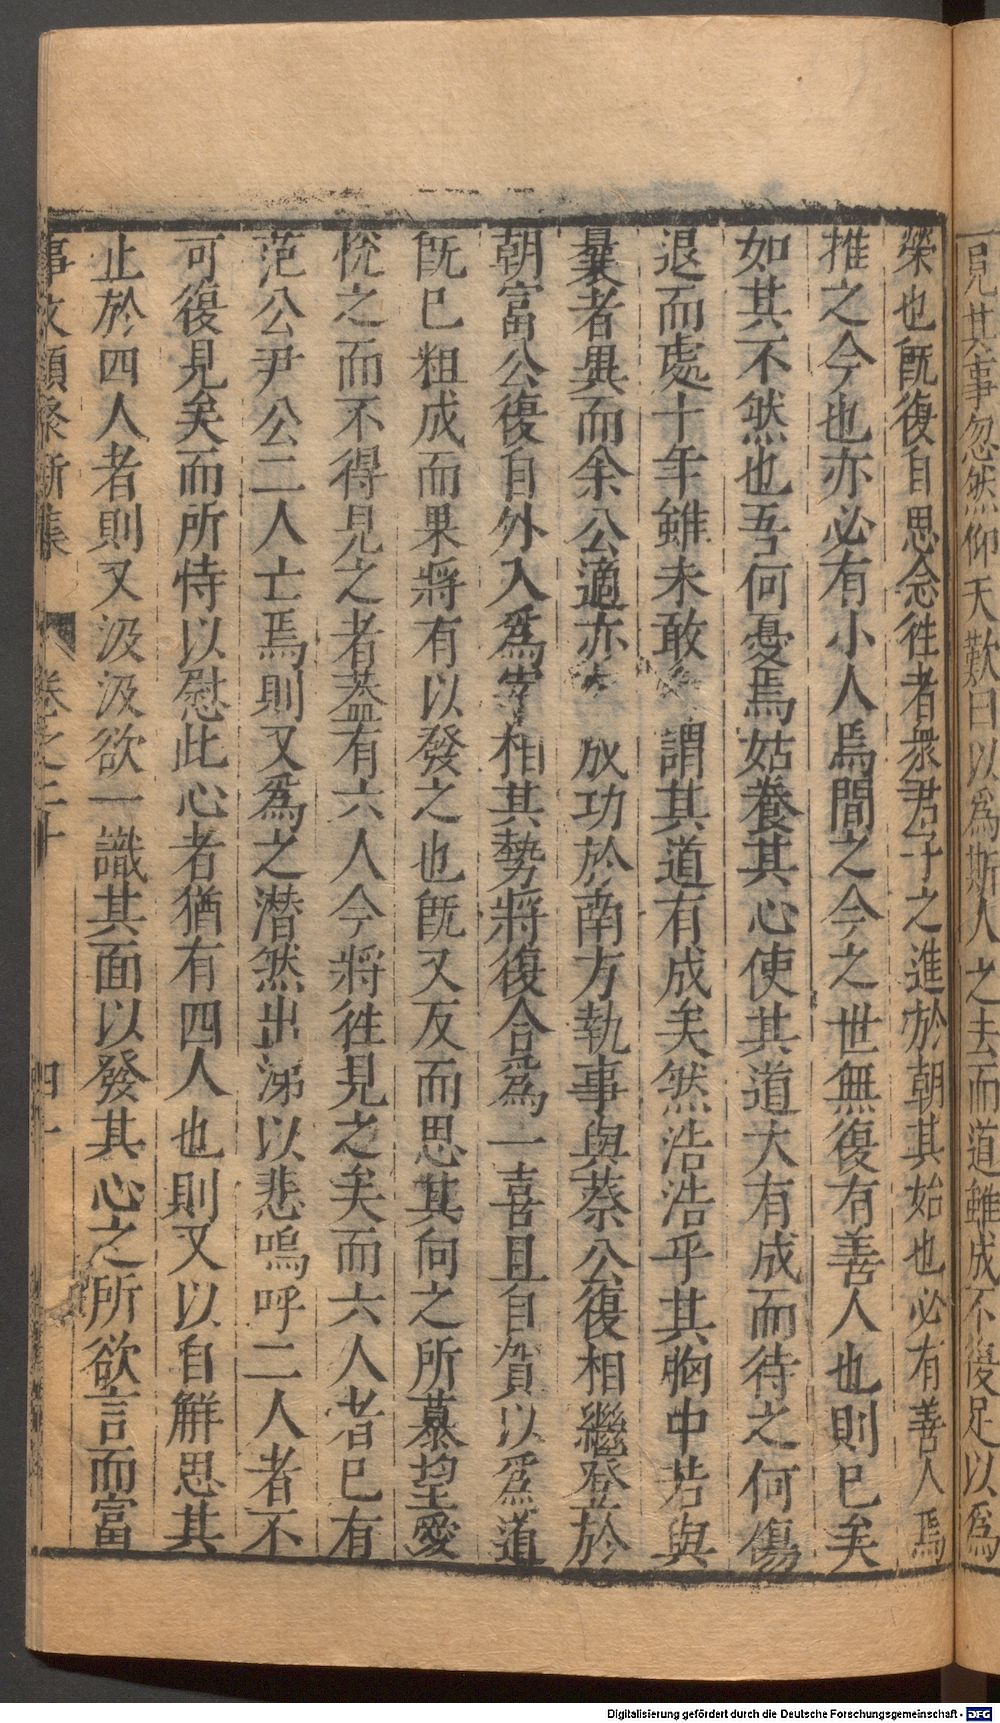 見其事忽然仰天歎曰以爲斯人之去而道雖成不復足以爲
榮也旣復自思念徃者衆君子之進於朝其始也必有善人焉
推之今也亦必有小人焉間之今之世無復有善人也則已矣
如其不然也吾何憂焉姑養其心使其道大有成而待之何傷
退而處十年雖未敢 謂其道有成矣然浩浩乎其胸中若與
曩者異而余公適亦 成功於南方執事與蔡公復相繼登於
朝富公復自外入爲宰相其勢將復合爲一喜且自賀以爲道
旣已粗成而果將有以發之也旣又反而思其向之所慕望愛
悅之而不得見之者蓋有六人今將徃見之矣而六人者已有
范公尹公二人亡焉則又爲之潜然出涕以悲嗚呼二人者不
可復見矣而所恃以慰此心者猶有四人也則又以自解思其
止於四人者則又汲汲欲一識其面以發其心之所欲言而富
事文類聚新集 卷之二十 四十
Digitalisierung gefördert durch die Deutsche Forschungsgemeinschaft - DFG